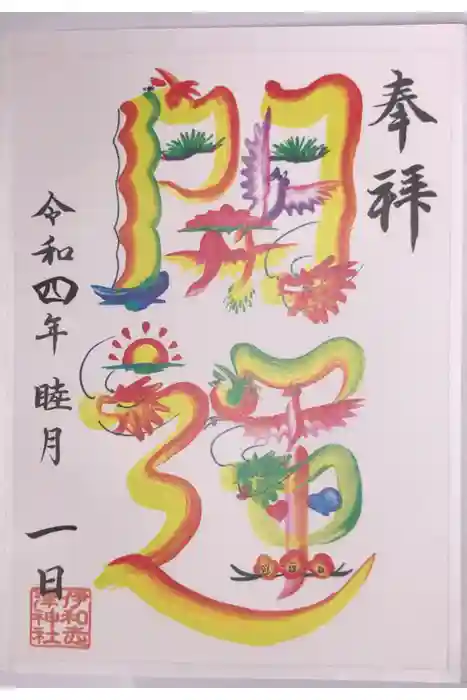 奉拝
開運
令和四年 睦月 一日
伊和志
津神社